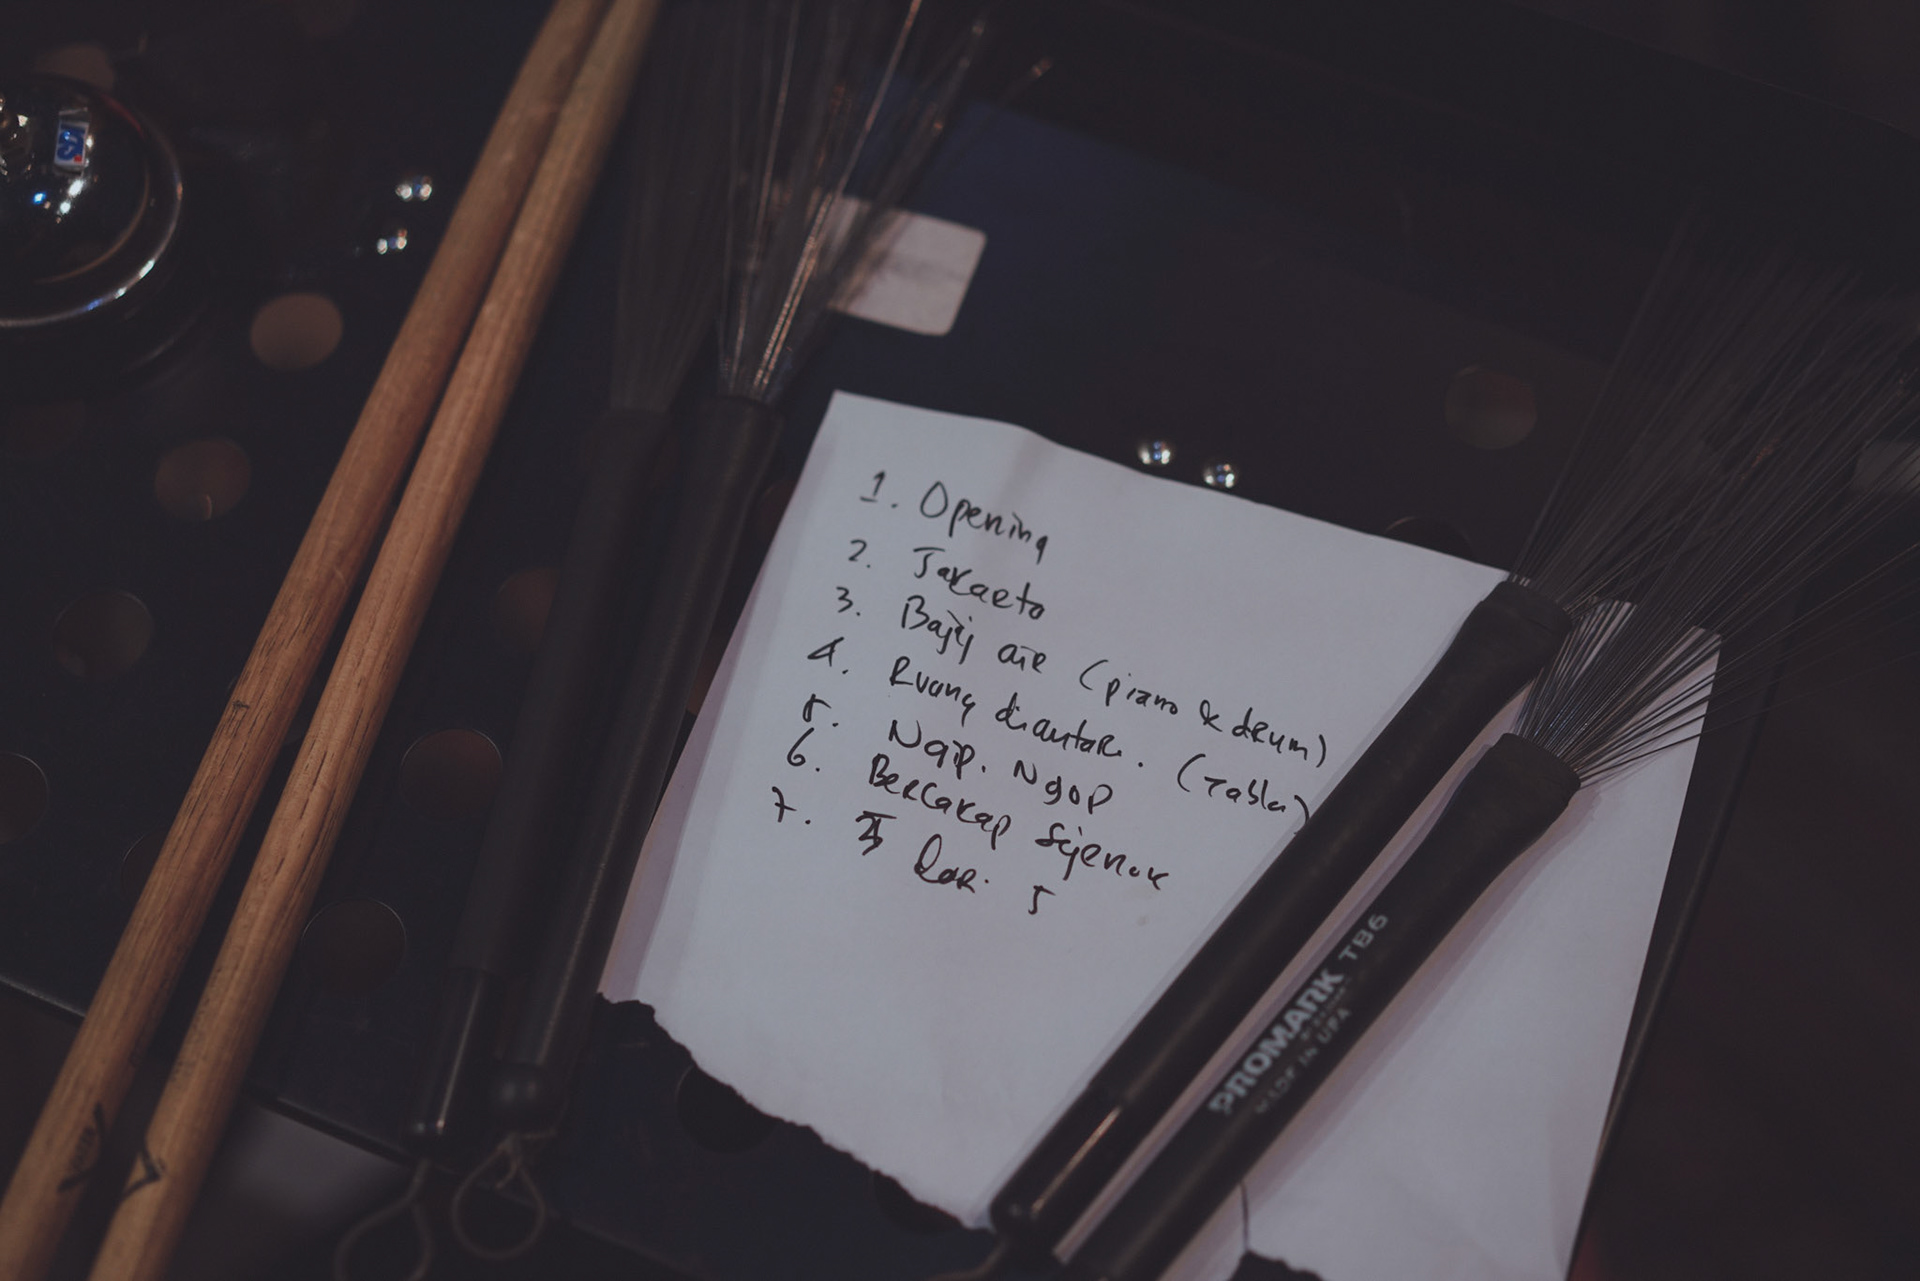 1. Opening
2. Jakarta
3. Bajij air (piano & drum)
4. Ruang diantara. (Tabla)
5. Ngip. Ngop
6. Bercakap Sejenak
7. dari 5
PROMARK TB6
MADE IN USA